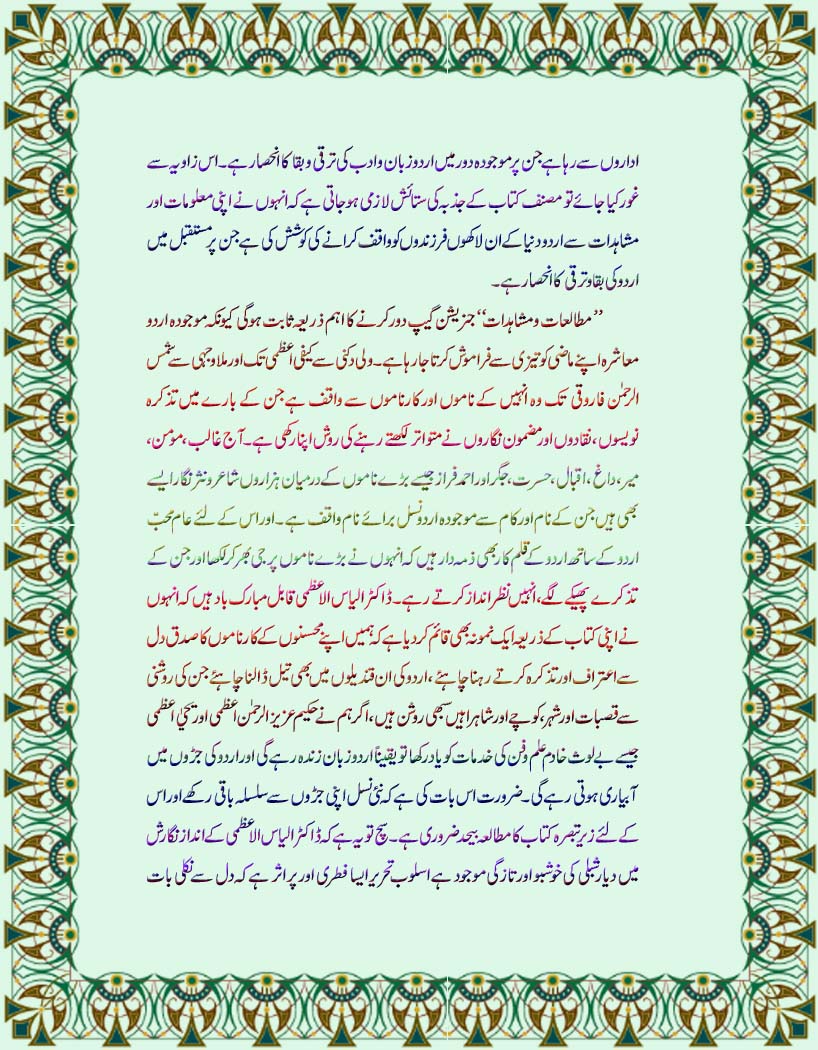 اداروں سے رہا ہے جن پر موجودہ دور میں اردو زبان و ادب کی ترقی و بقا کا انحصار ہے۔ اس زاویہ سے
غور کیا جائے تو مصنف کتاب کے جذبہ کی ستائش لازمی ہو جاتی ہے کہ انہوں نے اپنی معلومات اور
مشاہدات سے اردو دنیا کے ان لاکھوں فرزندوں کو واقف کرانے کی کوشش کی ہے جن پر مستقبل میں
اردو کی بقا و ترقی کا انحصار ہے۔
”مطالعات و مشاہدات“ جنریشن گیپ دور کرنے کا اہم ذریعہ ثابت ہوگی کیونکہ موجودہ اردو
معاشرہ اپنے ماضی کو تیزی سے فراموش کرتا جا رہا ہے۔ ولی دکنی سے کیفی اعظمی تک اور ملا وجہی سے شمس
الرحمٰن فاروقی تک وہ انہیں کے ناموں اور کارناموں سے واقف ہے جن کے بارے میں تذکرہ
نویسوں، نقادوں اور مضمون نگاروں نے متواتر لکھتے رہنے کی روش اپنا رکھی ہے۔ آج غالب، مومن،
میر، داغ، اقبال، حسرت، جگر اور احمد فراز جیسے بڑے ناموں کے درمیان ہزاروں شاعر و نثر نگار ایسے
بھی ہیں جن کے نام اور کام سے موجودہ اردو نسل برائے نام واقف ہے۔ اور اس کے لئے عام محبّ
اردو کے ساتھ اردو کے قلم کار بھی ذمہ دار ہیں کہ انہوں نے بڑے ناموں پر جی بھر کر لکھا اور جن کے
تذکرے پھیکے لگے، انہیں نظر انداز کرتے رہے۔ ڈاکٹر الیاس الاعظمی قابل مبارک باد ہیں کہ انہوں
نے اپنی کتاب کے ذریعہ ایک نمونہ بھی قائم کر دیا ہے کہ ہمیں اپنے محسنوں کے کارناموں کا صدق دل
سے اعتراف اور تذکرہ کرتے رہنا چاہئے، اردو کی ان قندیلوں میں بھی تیل ڈالنا چاہئے جن کی روشنی
سے قصبات اور شہر، کوچے اور شاہراہیں سبھی روشن ہیں، اگر ہم نے حکیم عزیز الرحمٰن اعظمی اور یحییٰ اعظمی
جیسے بے لوث خادم علم و فن کی خدمات کو یاد رکھا تو یقیناً اردو زبان زندہ رہے گی اور اردو کی جڑوں میں
آبیاری ہوتی رہے گی۔ ضرورت اس بات کی ہے کہ نئی نسل اپنی جڑوں سے سلسلہ باقی رکھے اور اس
کے لئے زیر تبصرہ کتاب کا مطالعہ بیحد ضروری ہے۔ سچ تو یہ ہے کہ ڈاکٹر الیاس الاعظمی کے انداز نگارش
میں دیار شبلی کی خوشبو اور تازگی موجود ہے اسلوب تحریر ایسا فطری اور پر اثر ہے کہ دل سے نکلی بات